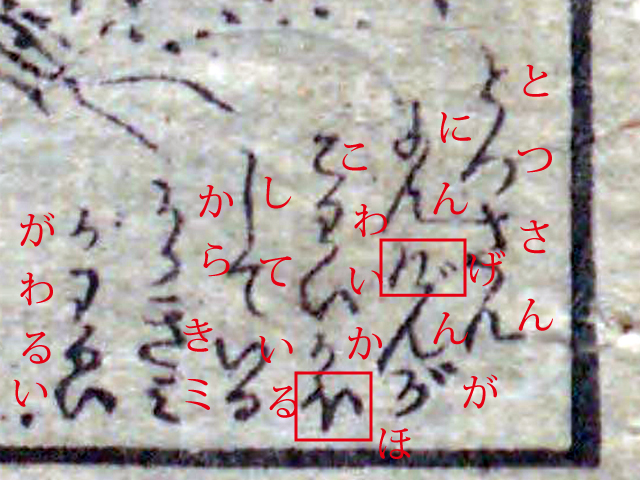 とつさん
にんげんが
こわいかほ
している
からきミ
がわるい